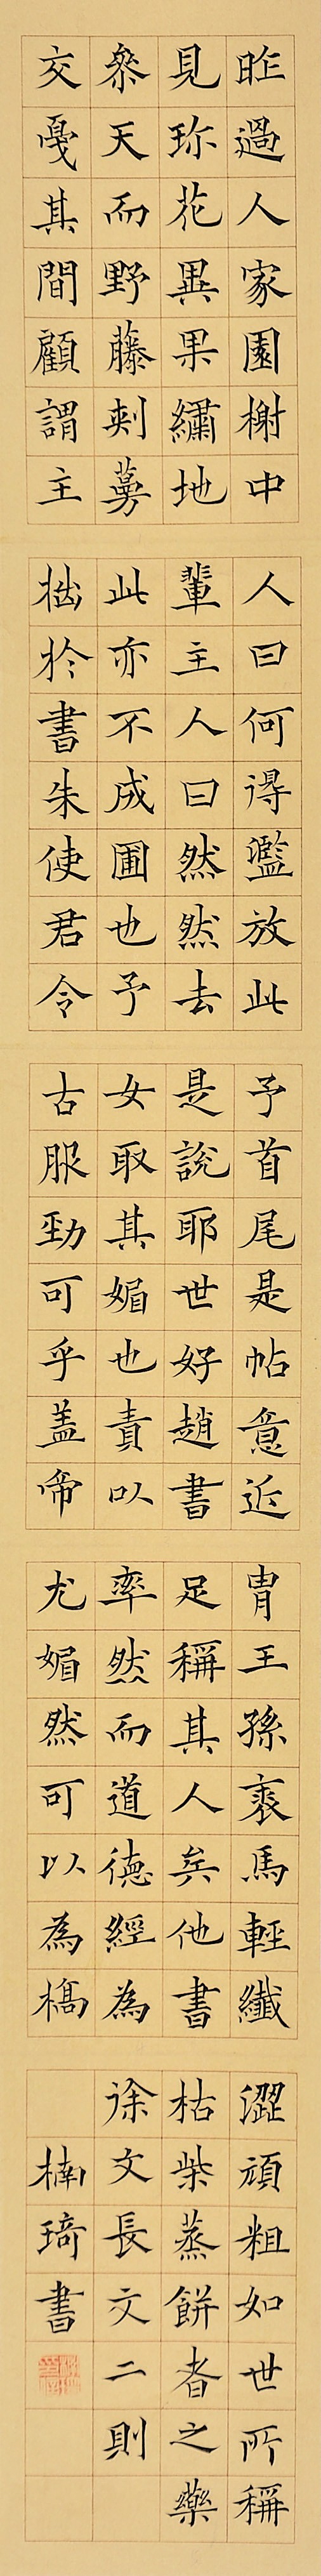 昨過人家園榭中
見珎花異果繡地
參天而野藤刺蔓
交戞其間顧謂主
人曰何得濫放此
輩主人曰然然去
此亦不成圃也予
拙於書朱使君令
予首尾是帖意近
是說耶世好趙書
女取其媚也責以
古服勁可乎蓋帝
胄王孫裘馬輕纖
足稱其人矣他書
率然而道德經為
尤媚然可以為槁
澀頑粗如世所稱
枯柴蒸餅者之藥
徐文長文二則
楠琦書